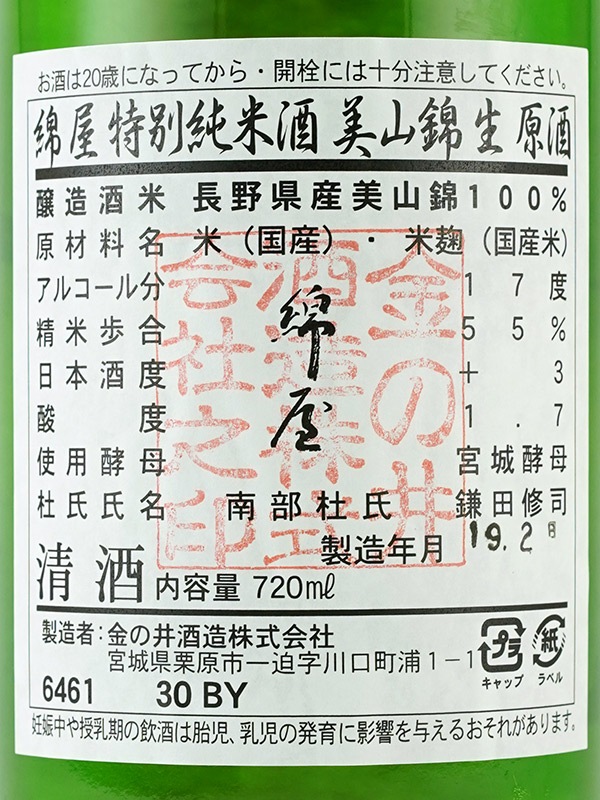 お酒は20歳になってから・開栓には十分注意してください。
綿屋 特別純米酒 美山錦 生 原酒
醸造酒米 長野県産美山錦100%
原材料名 米（国産）・ 米麹（国産米）
アルコール分 17度
精米歩合 55%
日本酒度 + 3
酸度 1.7
使用酵母 宮城酵母
杜氏氏名 南部杜氏 鎌田修司
綿屋
金の井
酒造株式
会社之印
製造年月 19.2月
清酒 内容量 720ml
製造者:金の井酒造株式会社
宮城県栗原市一迫字川口町浦1-1
プラ 紙
キャップ ラベル
6461 30 BY
妊娠中や授乳期の飲酒は胎児、乳児の発育に影響を与えるおそれがあります。